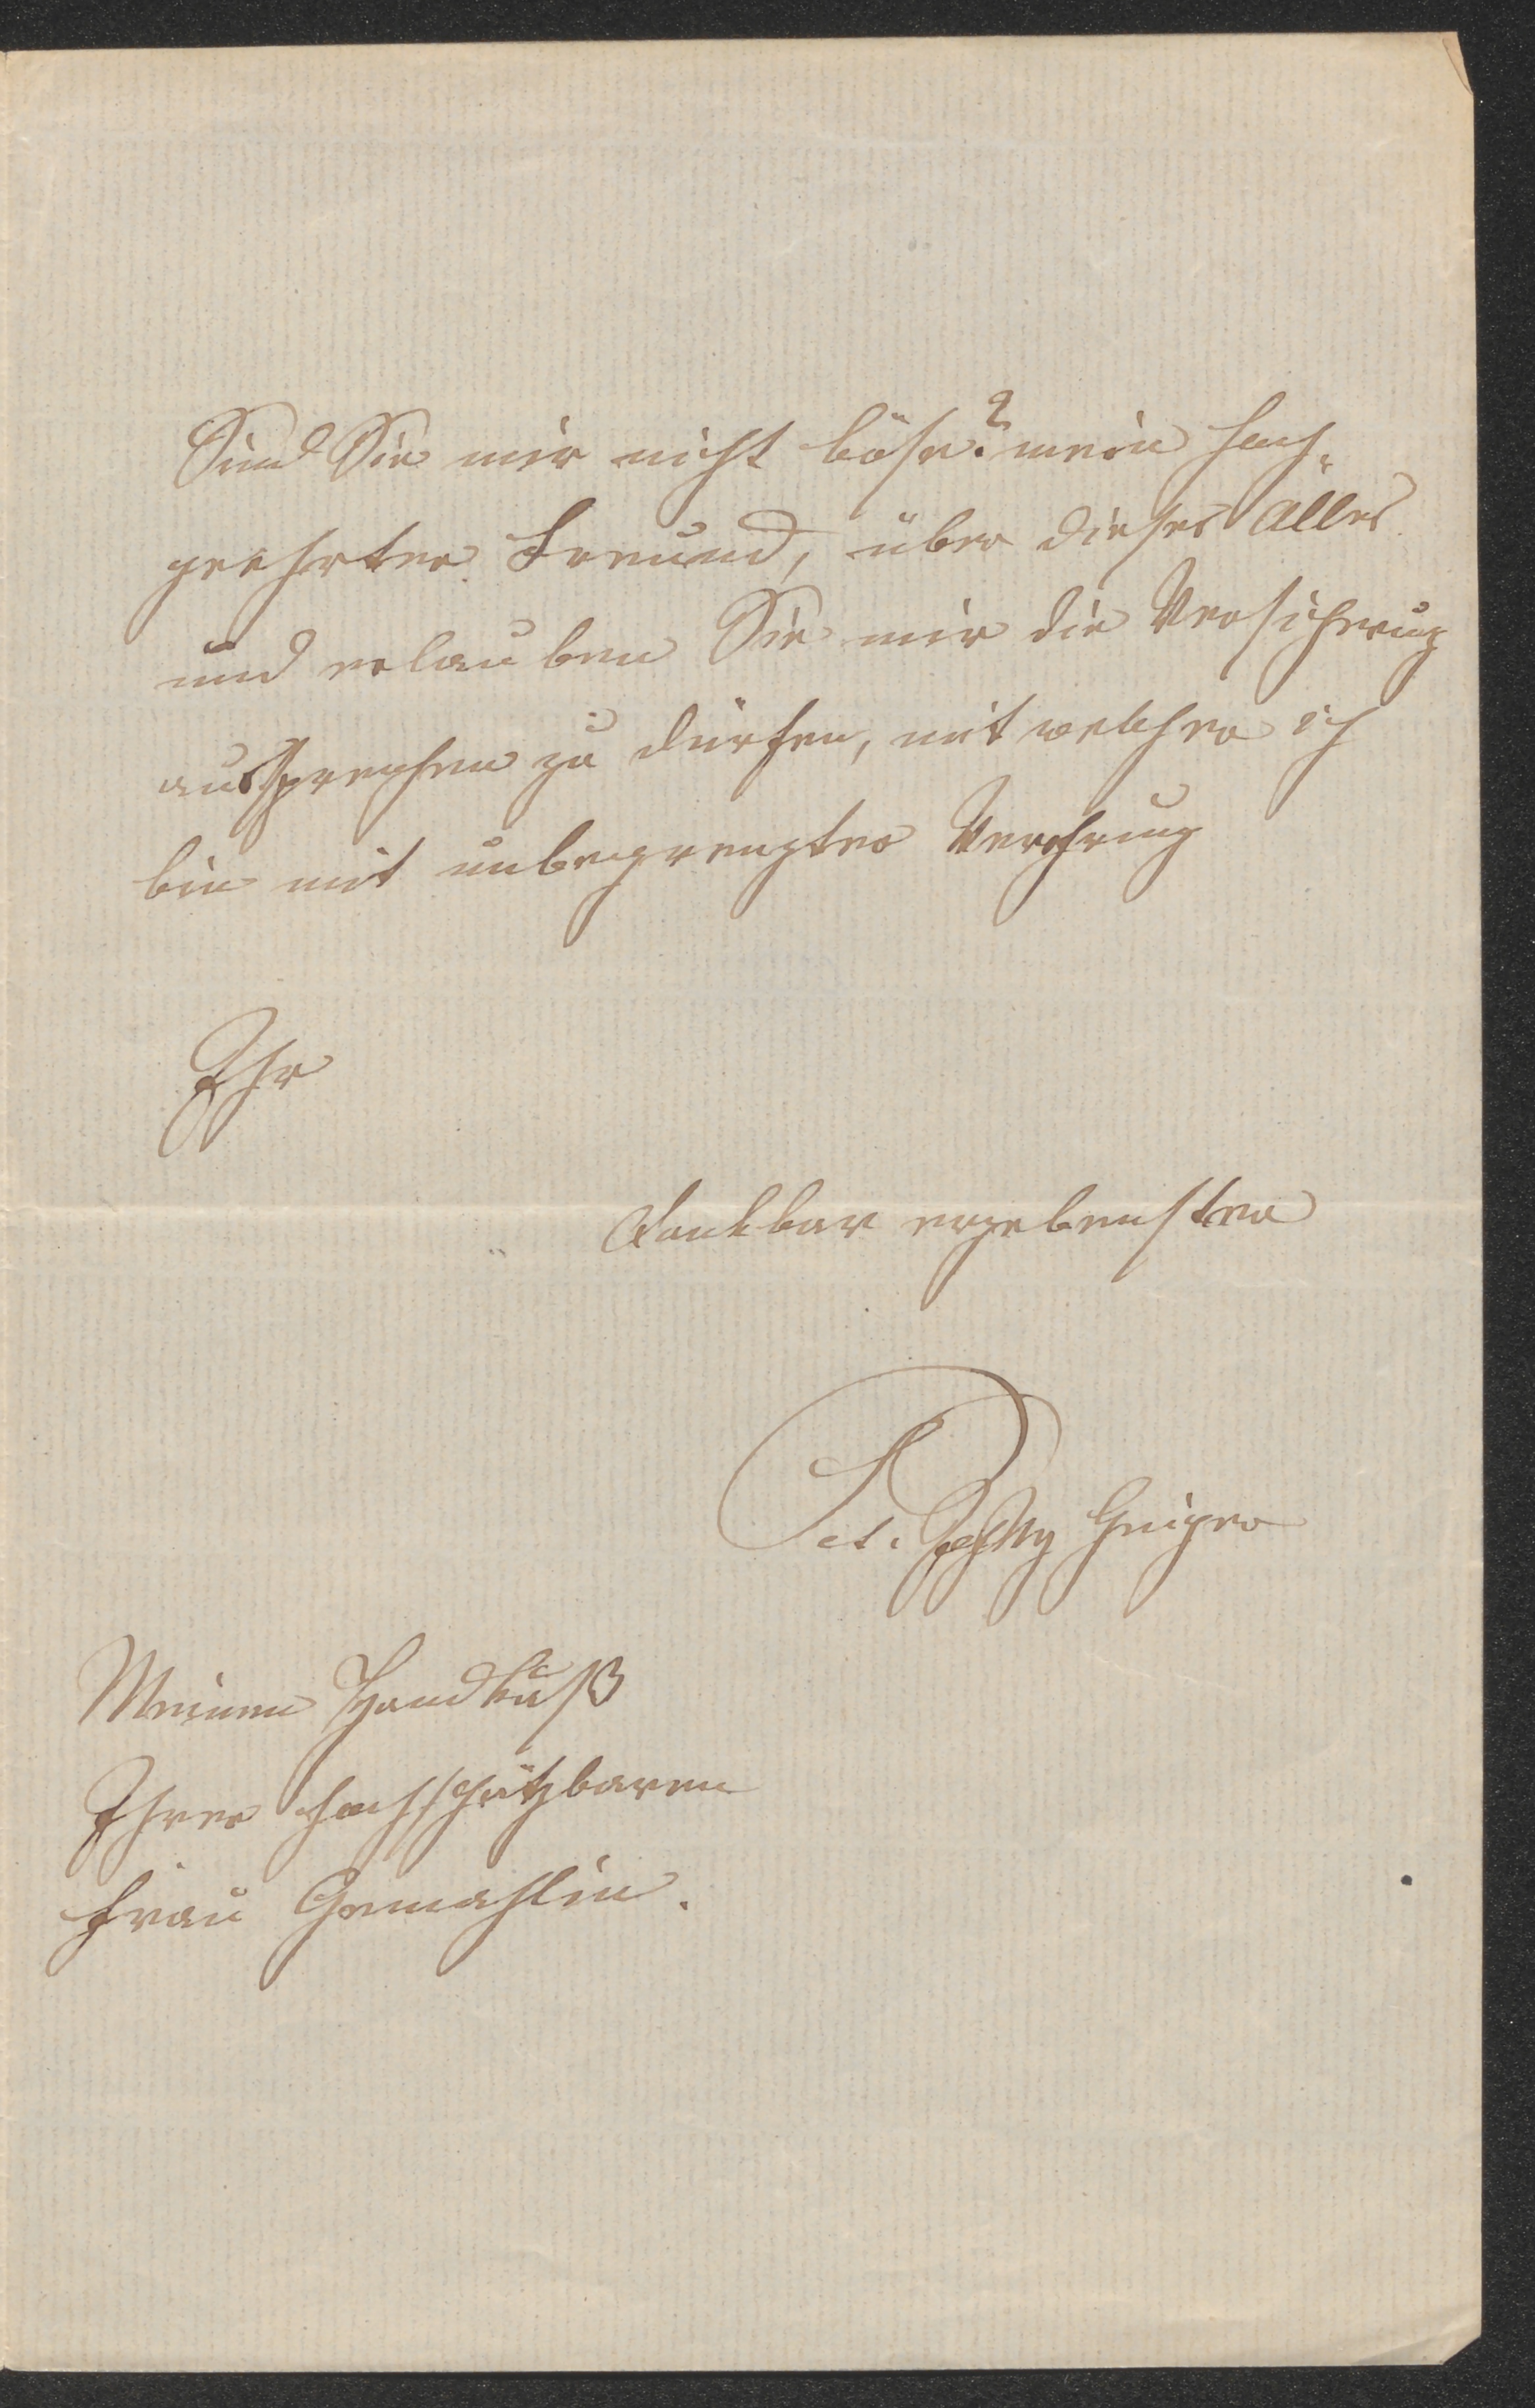 Sind Sie mir nicht böse? mein hoch-
geehrter Freund, über dieses Alles
und erlauben Sie mir die Versicherung
aussprechen zu dürfen, mit welcher ich
bin mit unbegrenzter Verehrung
Ihr
dankbar ergebenster
Pet. Geiger
Meinen Handkuß
Ihrer hochschätzbaren
Frau Gemahlin.